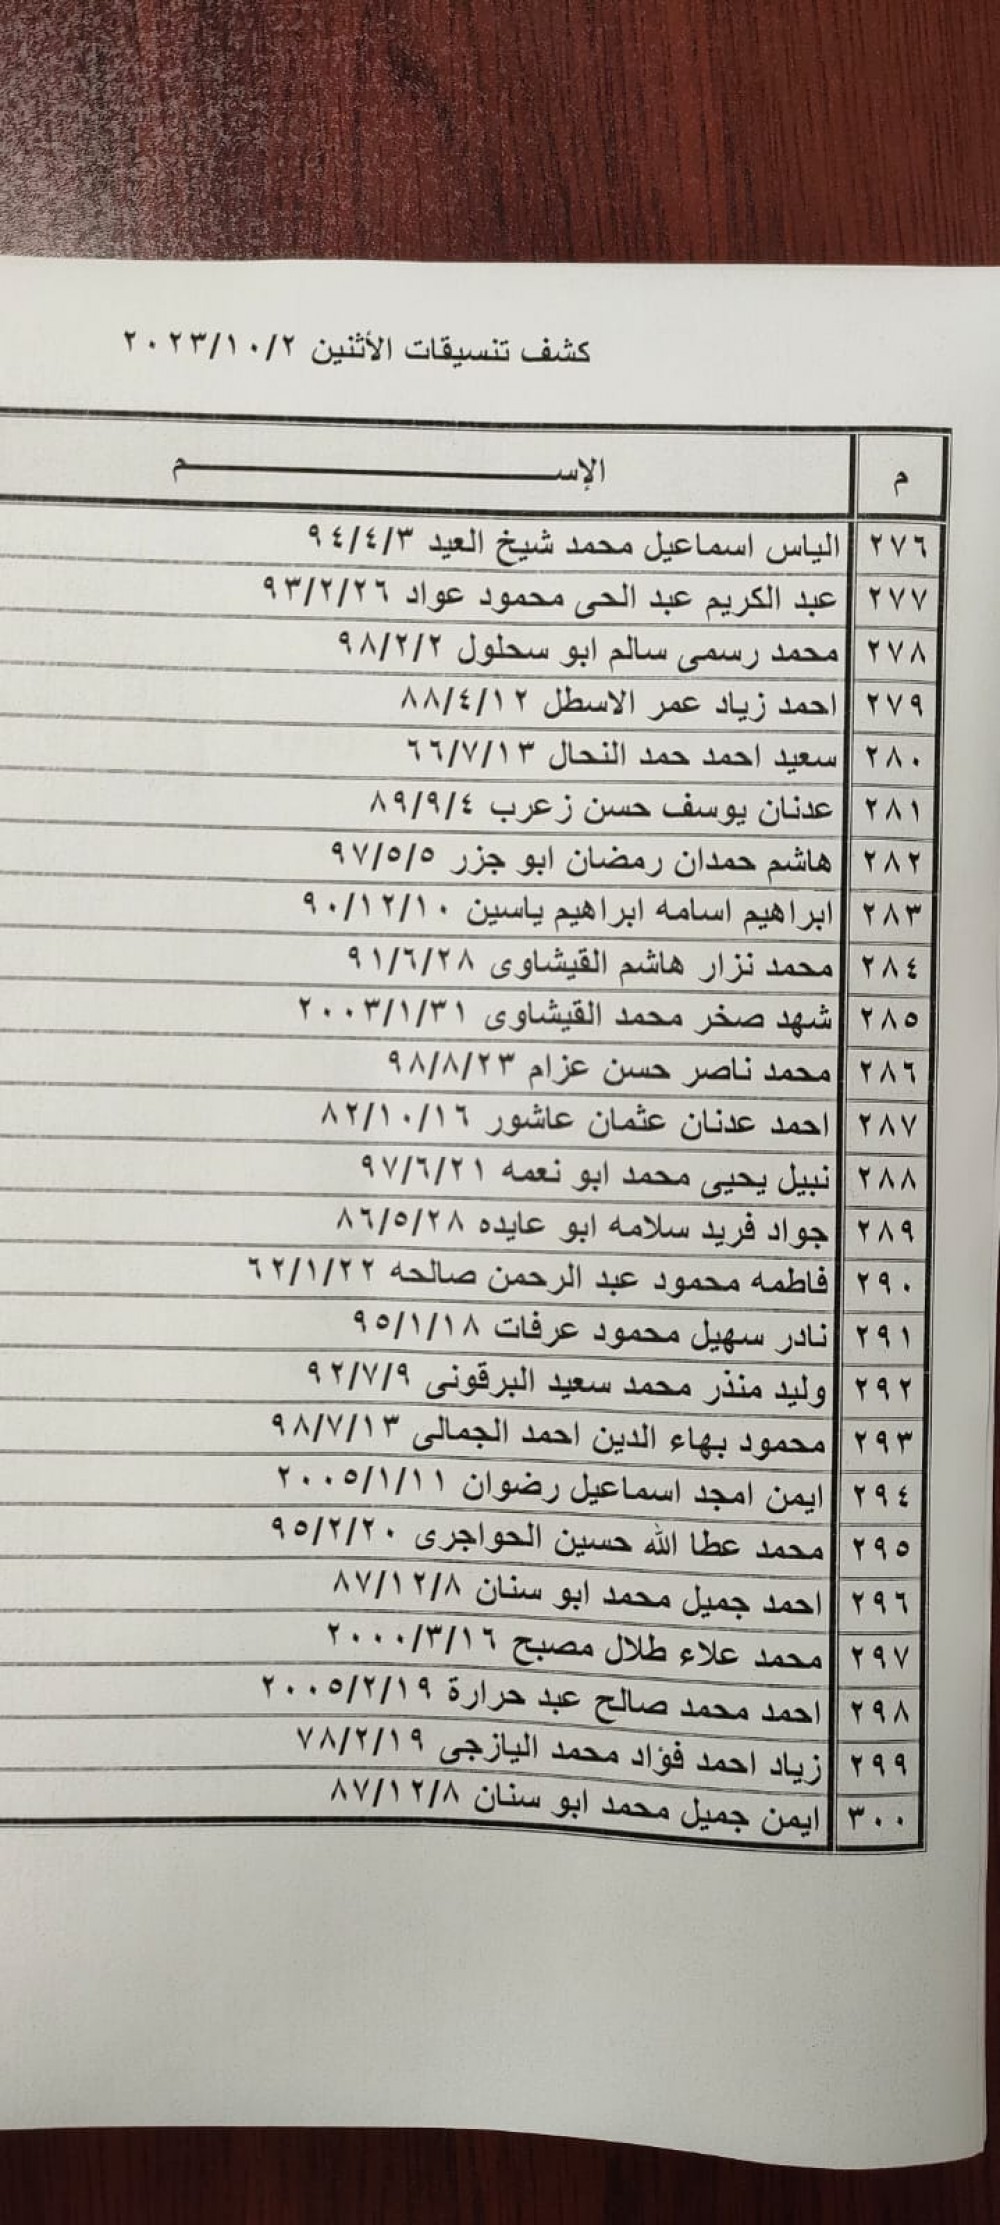 كشف تنسيقات الأثنين ٢٠٢٣/١٠/٢
م الإســــــــــــــــــم
٢٧٦ الياس اسماعيل محمد شيخ العيد ٩٤/٤/٣
٢٧٧ عبد الكريم عبد الحى محمود عواد ٩٣/٢/٢٦
٢٧٨ محمد رسمى سالم ابو سحلول ٩٨/٢/٢
٢٧٩ احمد زياد عمر الاسطل ٨٨/٤/١٢
٢٨٠ سعيد احمد حمد النحال ٦٦/٧/١٣
٢٨١ عدنان يوسف حسن زعرب ٨٩/٩/٤
٢٨٢ هاشم حمدان رمضان ابو جزر ٩٧/٥/٥
٢٨٣ ابراهيم اسامه ابراهيم ياسين ٩٠/١٢/١٠
٢٨٤ محمد نزار هاشم القيشاوى ٩١/٦/٢٨
٢٨٥ شهد صخر محمد القيشاوى ٢٠٠٣/١/٣١
٢٨٦ محمد ناصر حسن عزام ٩٨/٨/٢٣
٢٨٧ احمد عدنان عثمان عاشور ٨٢/١٠/١٦
٢٨٨ نبيل يحيى محمد ابو نعمه ٩٧/٦/٢١
٢٨٩ جواد فريد سلامه ابو عايده ٨٦/٥/٢٨
٢٩٠ فاطمه محمود عبد الرحمن صالحه ٦٢/١/٢٢
٢٩١ نادر سهيل محمود عرفات ٩٥/١/١٨
٢٩٢ وليد منذر محمد سعيد البرقونى ٩٢/٧/٩
٢٩٣ محمود بهاء الدين احمد الجمالى ٩٨/٧/١٣
٢٩٤ ايمن امجد اسماعيل رضوان ٢٠٠٥/١/١١
٢٩٥ محمد عطا الله حسين الحواجرى ٩٥/٢/٢٠
٢٩٦ احمد جميل محمد ابو سنان ٨٧/١٢/٨
٢٩٧ محمد علاء طلال مصبح ٢٠٠٠/٣/١٦
٢٩٨ احمد محمد صالح عبد حرارة ٢٠٠٥/٢/١٩
٢٩٩ زياد احمد فؤاد محمد اليازجى ٧٨/٢/١٩
٣٠٠ ايمن جميل محمد ابو سنان ٨٧/١٢/٨